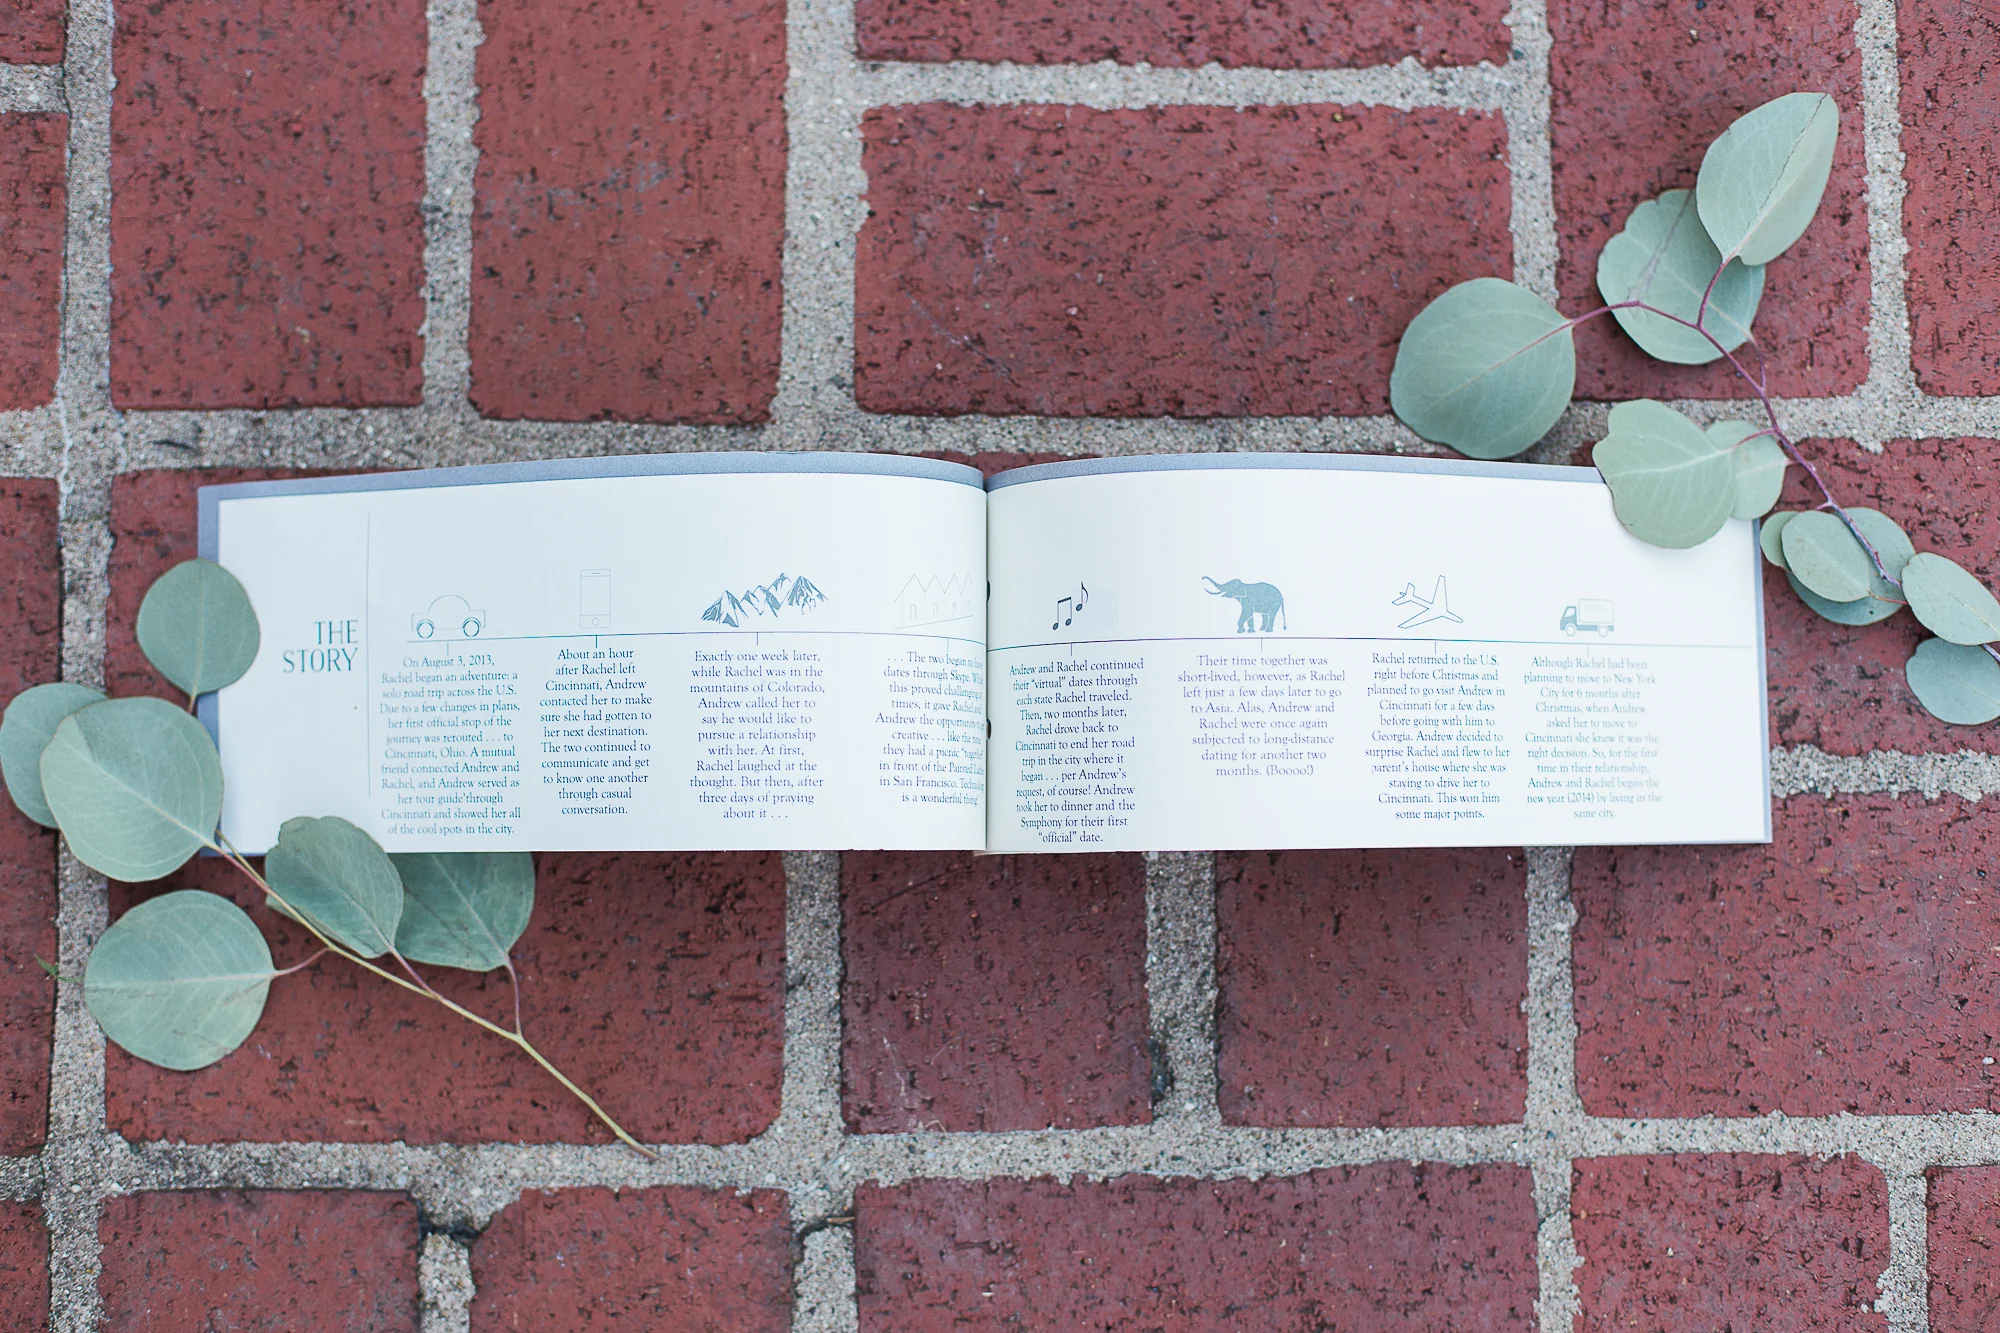 THE
STORY
On August 3, 2013,
Rachel began an adventure: a
solo road trip across the U.S.
Due to a few changes in plans,
her first official stop of the
journey was rerouted . . . to
Cincinnati, Ohio. A mutual
friend connected Andrew and
Rachel, and Andrew served as
her tour guide through
Cincinnati and showed her all
of the cool spots in the city.
About an hour
after Rachel left
Cincinnati, Andrew
contacted her to make
sure she had gotten to
her next destination.
The two continued to
communicate and get
to know one another
through casual
conversation.
Exactly one week later,
while Rachel was in the
mountains of Colorado,
Andrew called her to
say he would like to
pursue a relationship
with her. At first,
Rachel laughed at the
thought. But then, after
three days of praying
about it . . .
. . . The two began to
dates through Skype.
this proved challenging at
times, it gave Rachel and
Andrew the opportunity
creative . . . like the time
they had a picnic "together"
in front of the Painted
in San Francisco.
is a wonderful thing!
Andrew and Rachel continued
their "virtual" dates through
each state Rachel traveled.
Then, two months later,
Rachel drove back to
Cincinnati to end her road
trip in the city where it
began . . . per Andrew's
request, of course! Andrew
took her to dinner and the
Symphony for their first
"official" date.
Their time together was
short-lived, however, as Rachel
left just a few days later to go
to Asia. Alas, Andrew and
Rachel were once again
subjected to long-distance
dating for another two
months. (Boooo!)
Rachel returned to the U.S.
right before Christmas and
planned to go visit Andrew in
Cincinnati for a few days
before going with him to
Georgia. Andrew decided to
surprise Rachel and flew to her
parent's house where she was
staying to drive her to
Cincinnati. This won him
some major points.
Although Rachel had been
planning to move to New York
City for 6 months after
Christmas, when Andrew
asked her to move to
Cincinnati she knew it was the
right decision. So, for the first
time in their relationship,
Andrew and Rachel began the
new year (2014) by living in the
same city.